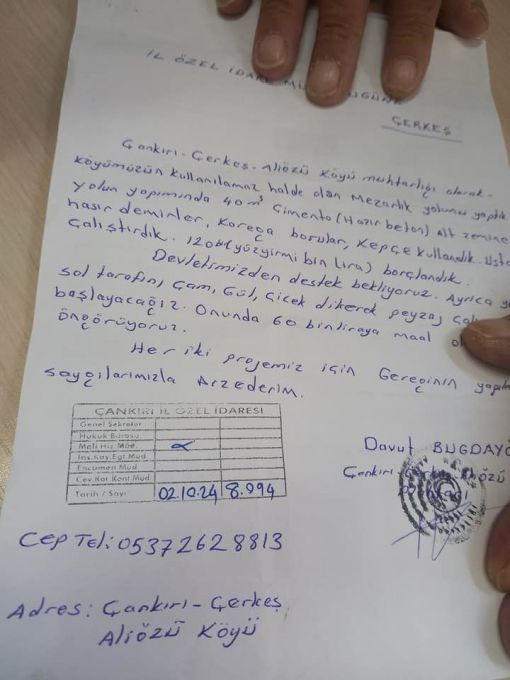 İL ÖZEL İDARE
ÇERKEŞ
Çankırı-Çerkeş-Aliözü Köyü muhtarlığı olarak.
Köyümüzün kullanılamaz halde olan Mezarlık yolunu yaptık
yolun yapımında 40 m³ Çimento (Hazır beton) Alt zemine
hasır demirler, Korega borular, Kepçe kullandık. Usta
Çalıştırdık. 120bt (yüzyirmi bin Lira) borçlandık.
Devletimizden destek bekliyoruz. Ayrıca
sol tarafını, Çam, Gül, Çiçek dikerek peyzaj
başlayacağız. Onunda 60 bin liraya maal
öngörüyoruz.
Her iki projemiz için Gereğinin
saygılarımızla Arzederim.
ÇANKIRI İL ÖZEL İDARESİ
Genel Sekreter
Hukuk Bürosu
Mali Hiz. Müd.
İns.Kay.Eğt.Müd.
Encümen Müd
Çev.Kor.Kont.Müd.
Tarih / Sayı 02.10.24 8.994
Davut BUGDAYC
Çankırı-Aliözü
Cep Tel: 05372628813
Adres: Çankırı-Çerkeş
Aliözü Köyü